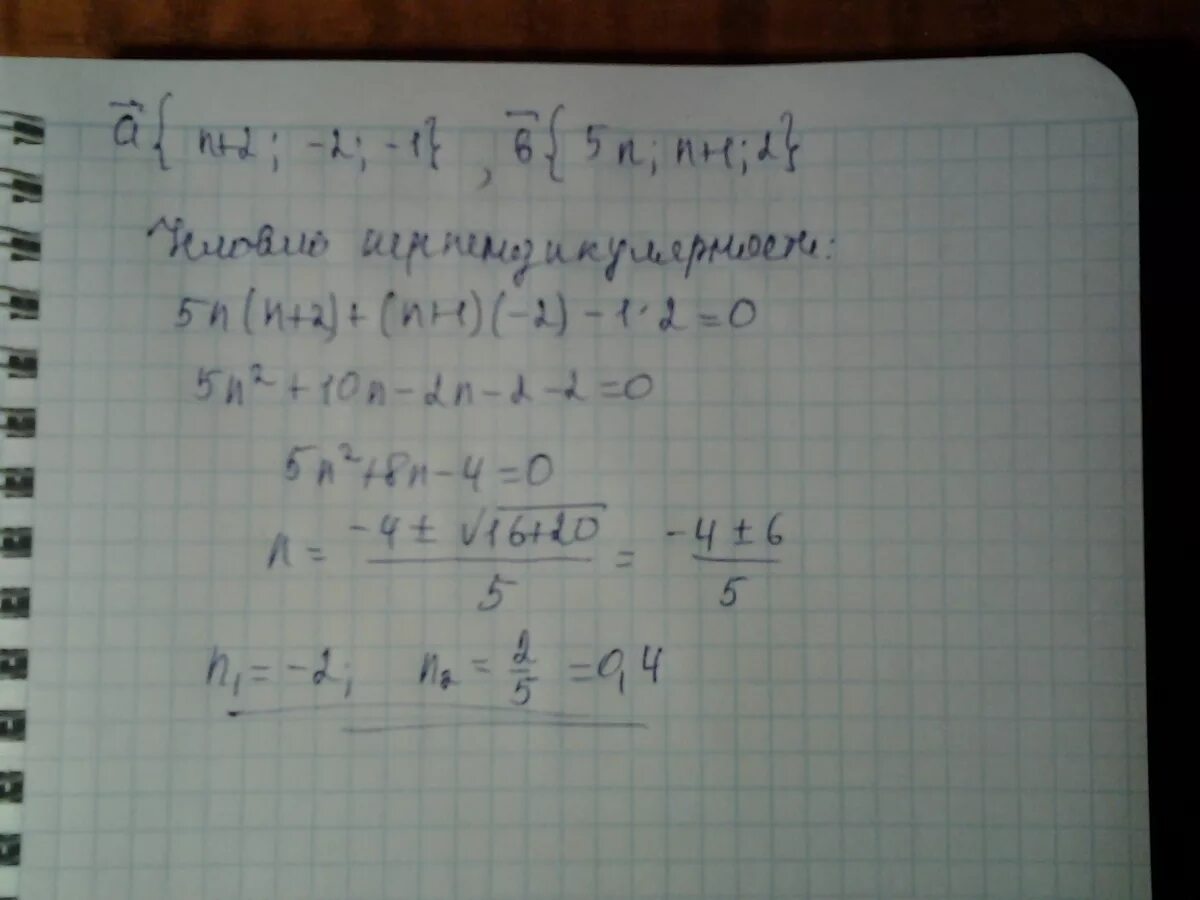 a⃗{ n+2; -2; -1} , в⃗{ 5n; n+1; 2}
Условие перпендикулярности:
5n(n+2)+(n+1)(-2)-1·2=0
5n²+10n-2n-2-2=0
5n²+8n-4=0
n = (-4±√(16+20))/5 = (-4±6)/5
n₁=-2; n₂ = 2/5 =0,4